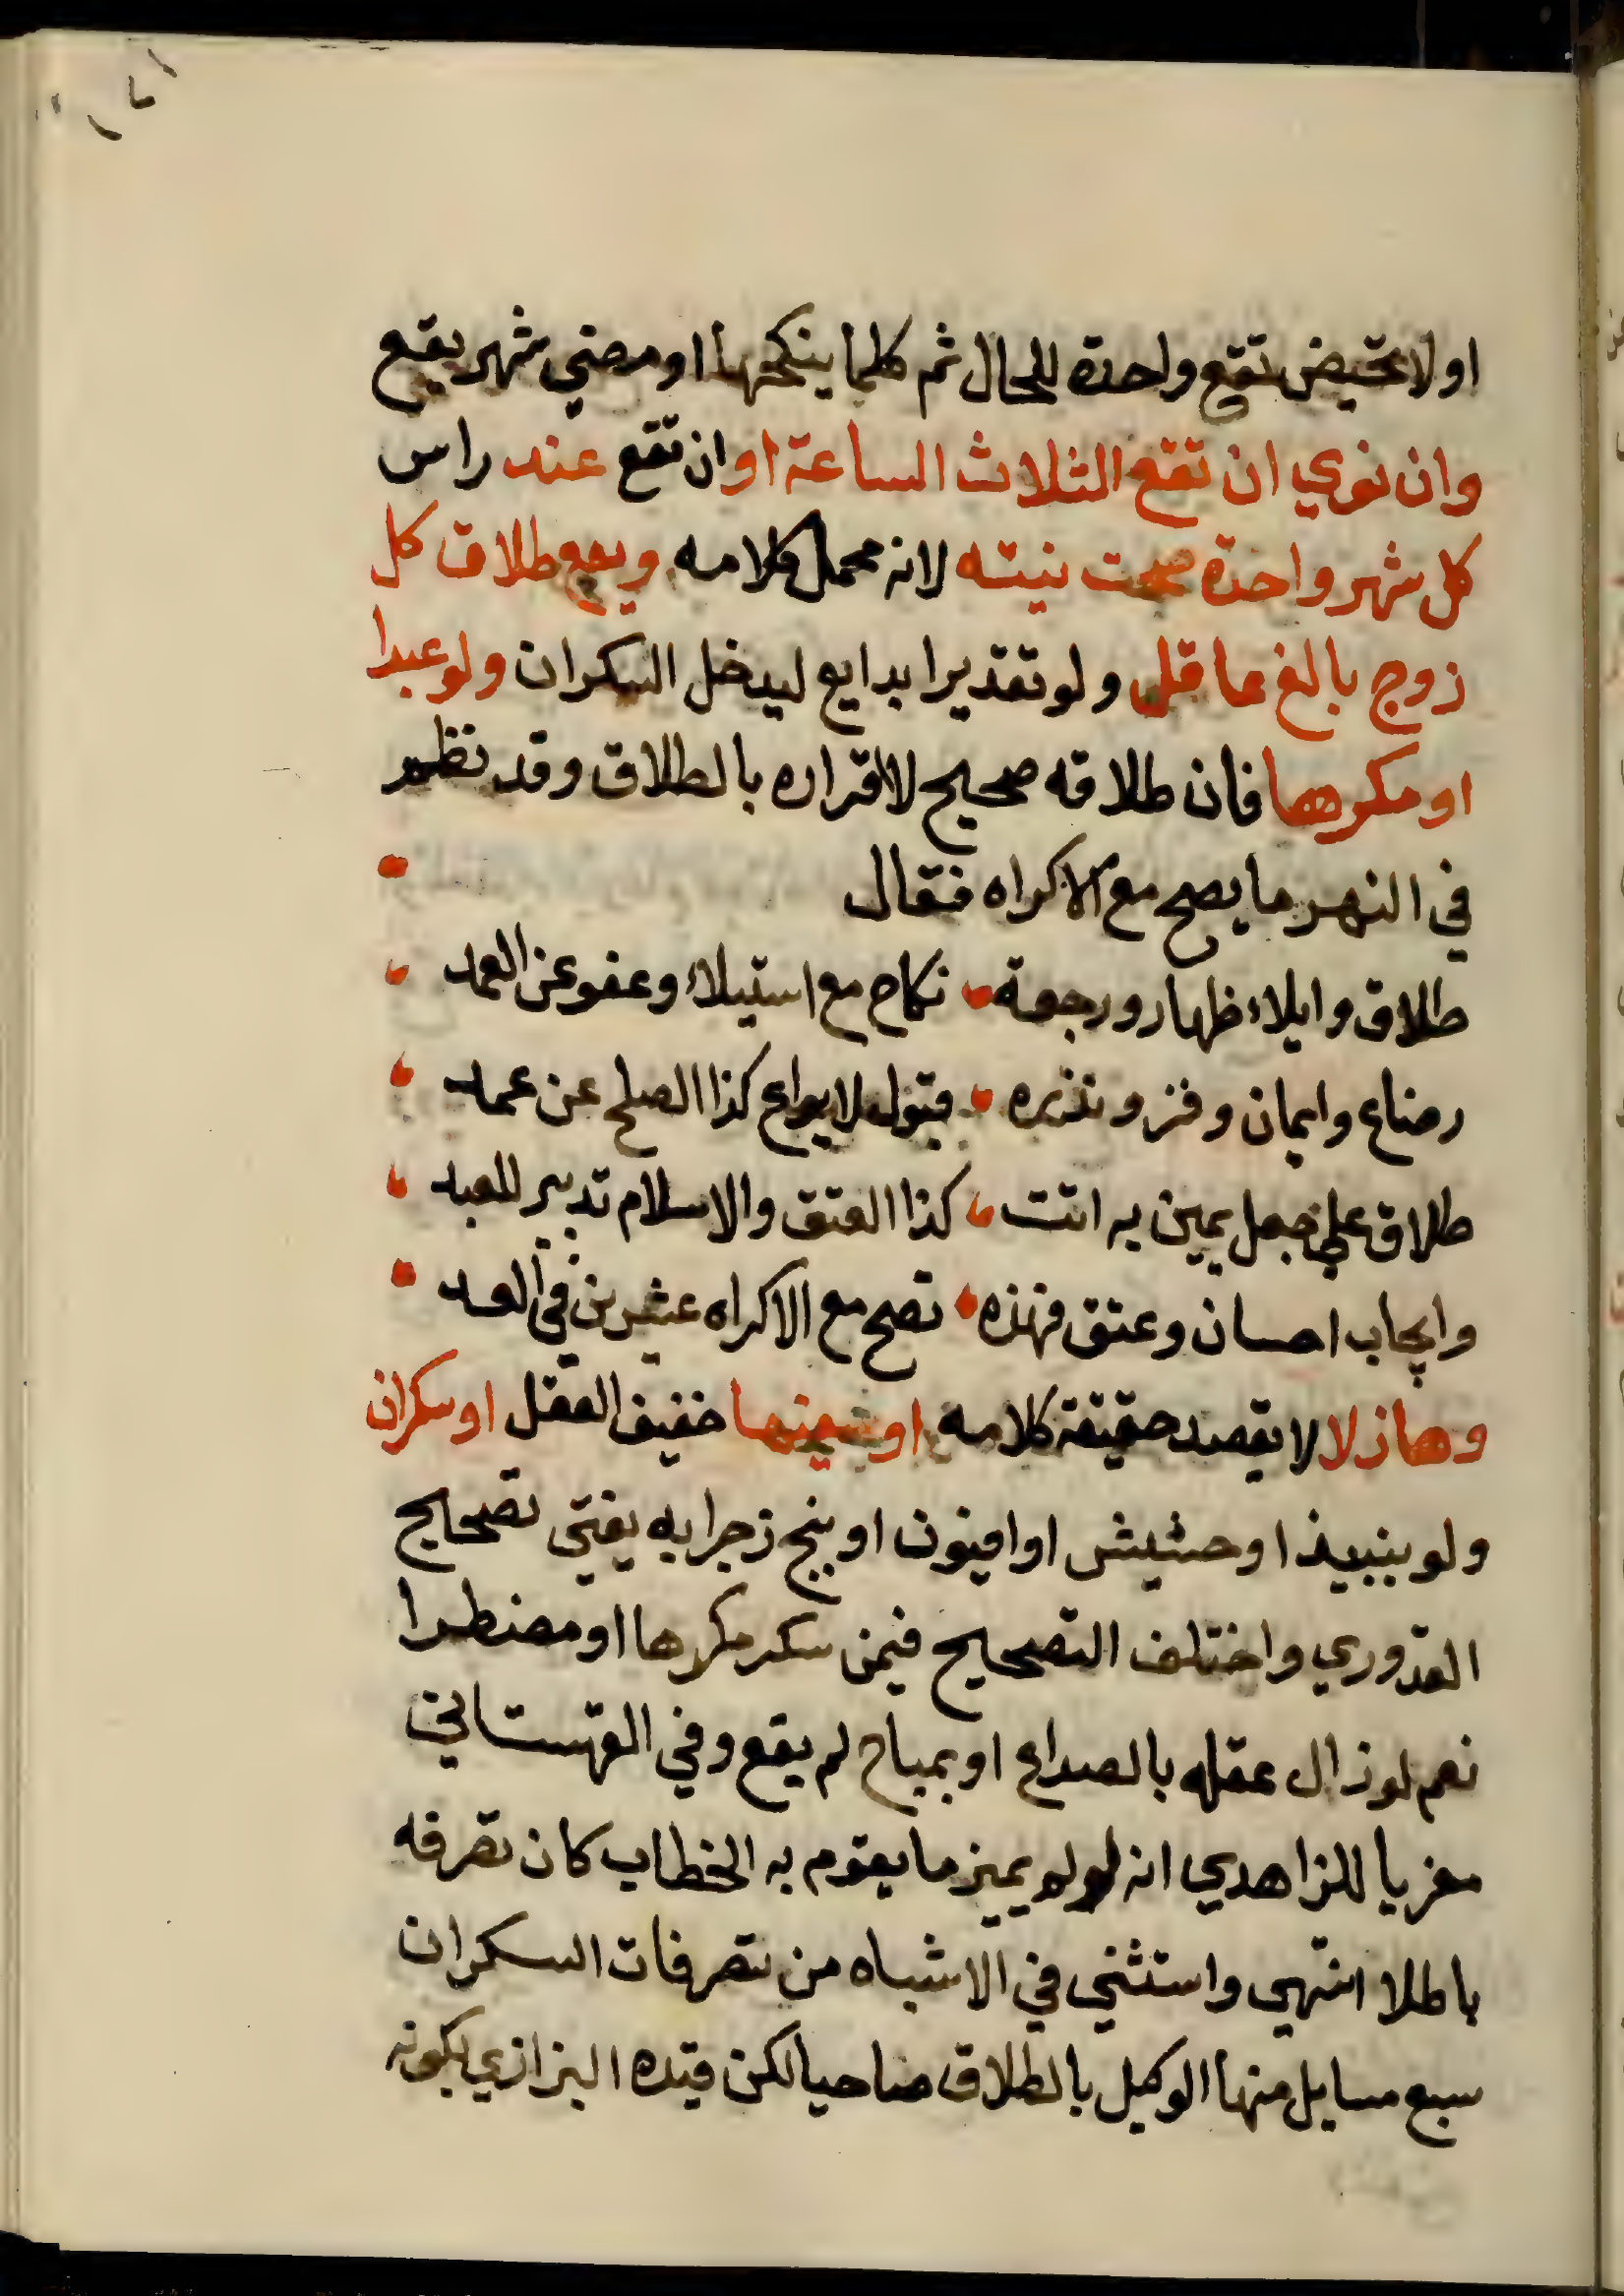 او لا تحيض تقع واحدة للحال ثم كلما ينكحها او مضي شهر يقع
وان نوي ان تقع الثلاث الساعة او ان تقع عند راس
كل شهر واحدة صحت نيته لانه محمل كلامه ويقع طلاق كل
زوج بالغ عاقل ولو تقديرا بدايع ليدخل السكران ولو عبدا
او مكرها فان طلاقه صحيح لا اقراره بالطلاق وقد نظم
في النهر ما يصح مع الاكراه فقال
طلاق وايلاء ظهار ورجعة نكاح مع استيلاء وعفو عن العمد
رضاع وايمان وفئ ونذره قبول لايداع كذا الصلح عن عمد
طلاق علي جعل يمين به اتت كذا العتق والاسلام تدبير للعبد
وايجاب احسان وعتق فهذه تصح مع الاكراه عشرين في العد
وهازلا لا يقصد حقيقة كلامه او سفيها خفيف العقل او سكران
ولو بنبيذ او حشيش او افيون او بنج زجرا به يفتى تصحيح
القدوري واختلف التصحيح فيمن سكر مكرها او مضطرا
نعم لو زال عقله بالصداع او بمباح لم يقع وفي القهستاني
معزيا للزاهدي انه لو لم يميز ما يقوم به الخطاب كان تصرفه
باطلا انتهي واستثني في الاشباه من تصرفات السكران
سبع مسايل منها الوكيل بالطلاق صاحيا لكن قيده البزازي بكونه